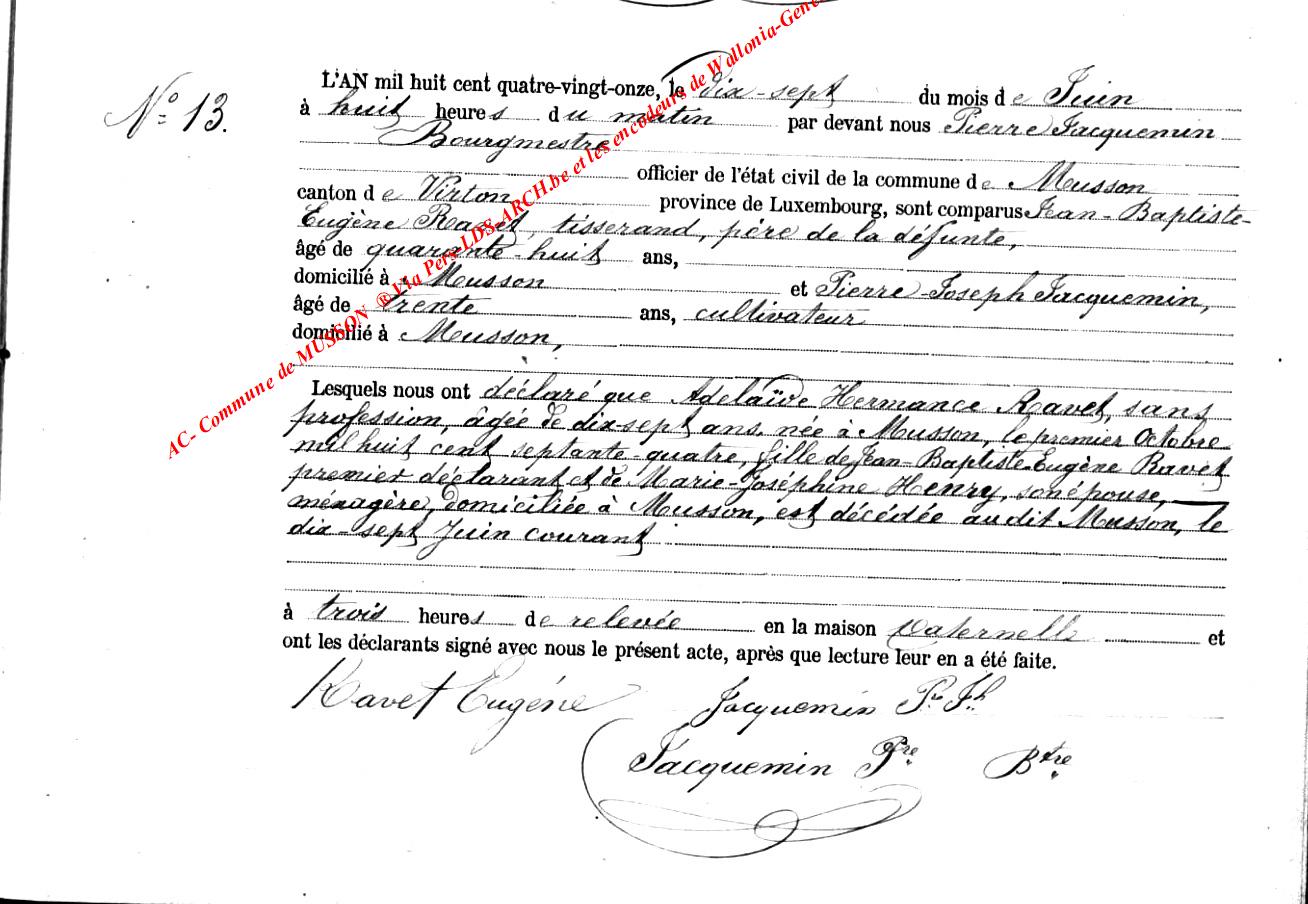 L'AN mil huit cent quatre-vingt-onze, le dix-sept du mois de Juin
N° 13.
à huit heures du matin par devant nous Pierre Jacquemin
Bourgmestre
officier de l'état civil de la commune de Musson
canton de Virton province de Luxembourg, sont comparus Jean-Baptiste-
Eugène Ravet, tisserand, père de la défunte,
âgé de quarante-huit ans,
domicilié à Musson et Pierre-Joseph Jacquemin,
âgé de trente ans, cultivateur
domicilié à Musson,
Lesquels nous ont déclaré que Adelaïde Hermance Ravet, sans
profession, âgée de dix-sept ans, née à Musson, le premier Octobre
mil huit cent septante-quatre, fille de Jean-Baptiste-Eugène Ravet
premier déclarant et de Marie-Joséphine Henry, son épouse,
ménagère, domiciliée à Musson, est décédée au dit Musson, le
dix-sept Juin courant
à trois heures de relevée en la maison paternelle et
ont les déclarants signé avec nous le présent acte, après que lecture leur en a été faite.
Ravet Eugéne Jacquemin Pre Jh
Jacquemin Pre Btre
AC- Commune de MUSSON ® Via Pers LDS-ARCH.be et les encodeurs de Wallonia-Gene